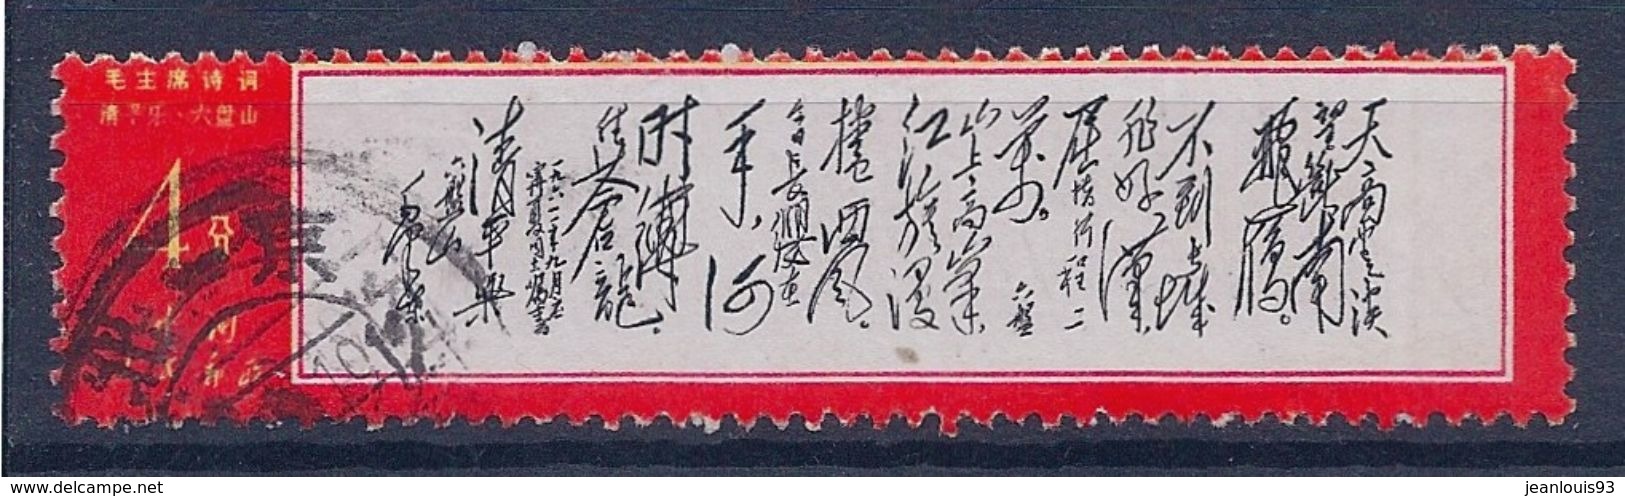 毛主席诗词
清平乐·六盘山
4分
天高云淡
望断南
飞雁。
不到长城
非好汉,
屈指行程二
万。
六盘
山上高峰,
红旗漫
卷西风。
今日长缨在
手,何
时缚
住苍龙。
一九六一年九月
清平乐
六盘山
毛泽东
www.delcampe.net
jeanlouis93